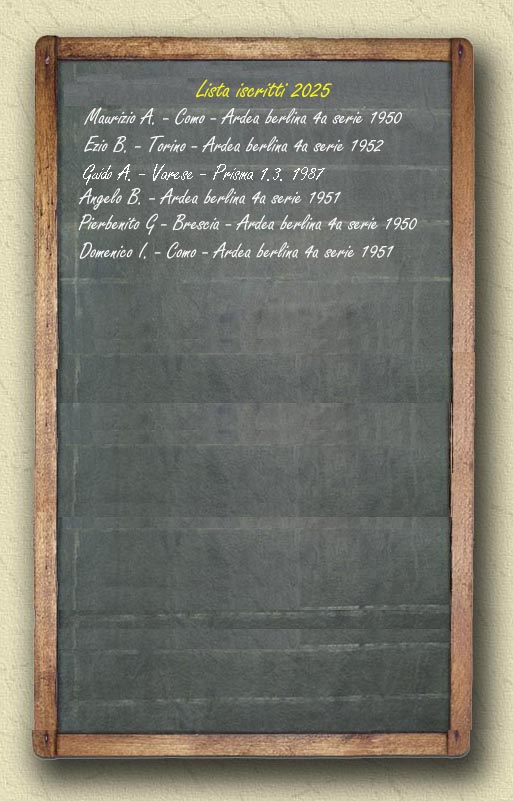 Lista iscritti 2025
Maurizio A. - Como - Ardea berlina 4a serie 1950
Ezio B. - Torino - Ardea berlina 4a serie 1952
Guido A. - Varese - Prisma 1.3. 1987
Angelo B. - Ardea berlina 4a serie 1951
Pierbenito G - Brescia - Ardea berlina 4a serie 1950
Domenico I. - Como - Ardea berlina 4a serie 1951